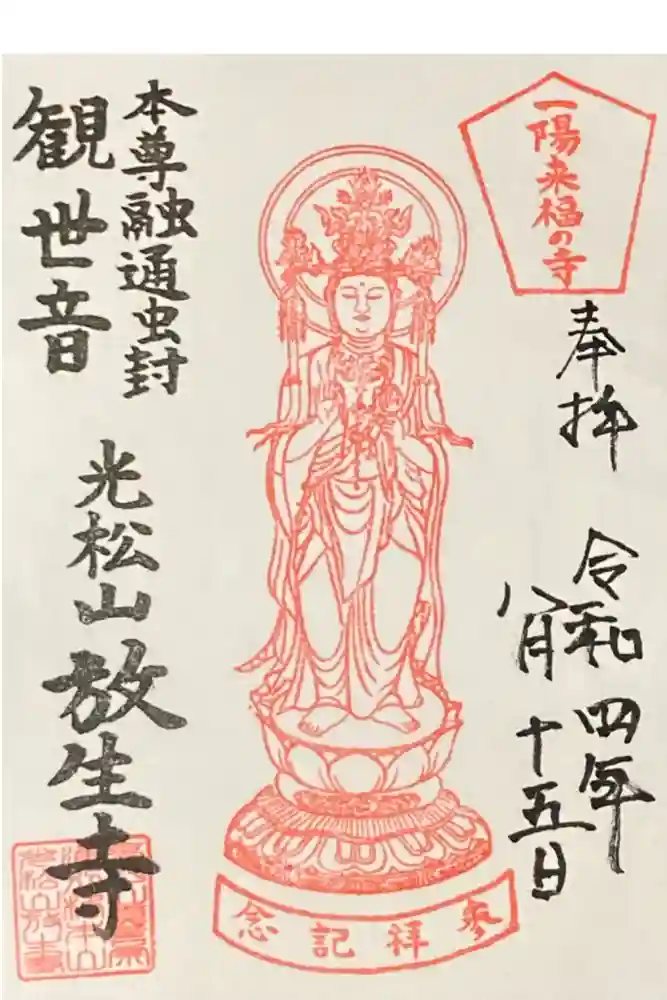 一陽来福の寺
奉拝
令和四年
八月十五日
参拝記念
本尊融通虫封
観世音
光松山
放生寺